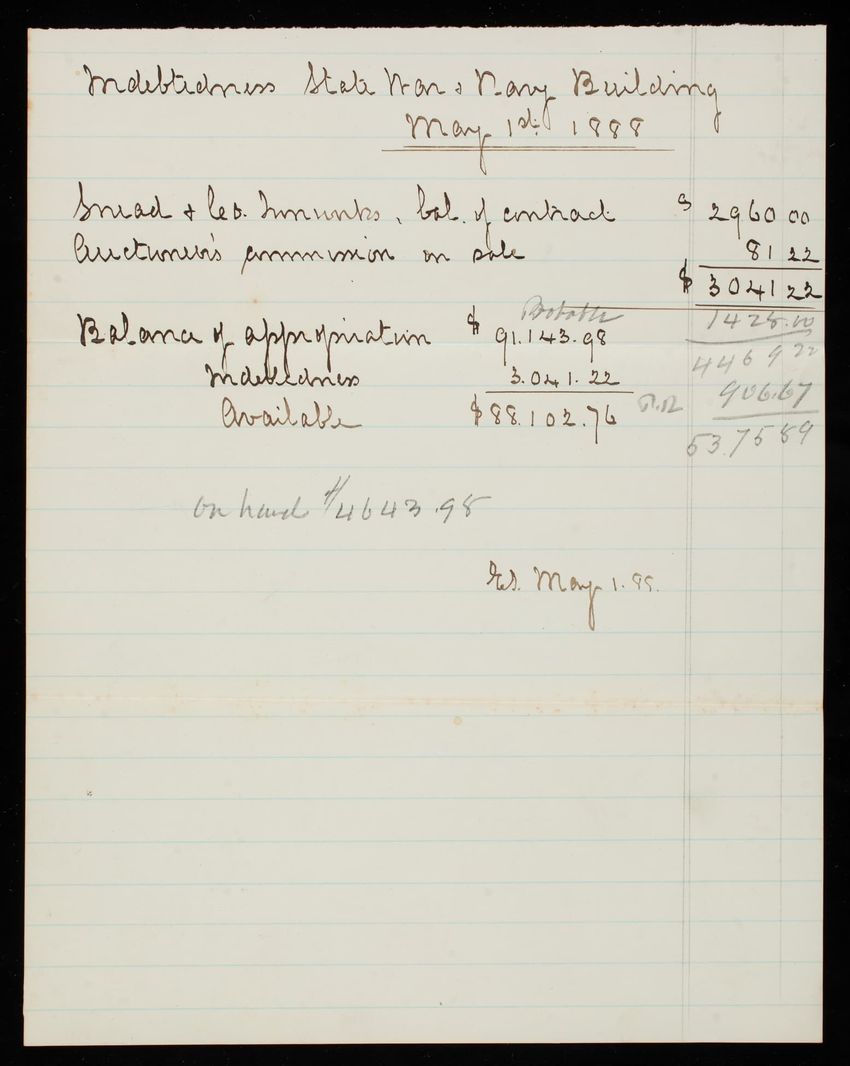 Indebtedness State War & Navy Building
May 1st. 1888
Snead & Co. Iron works, bal. of contract $ 2960 00
Auctioneer's commission on sale 81 22
$ 3041 22
Probable 1428.00
Balance of appropriation $ 91.143.98
4469 22
Indebtedness 3.041.22
906.67
Available $88.102.76
53.75 89
on hand $4643.98
May 1. 88.